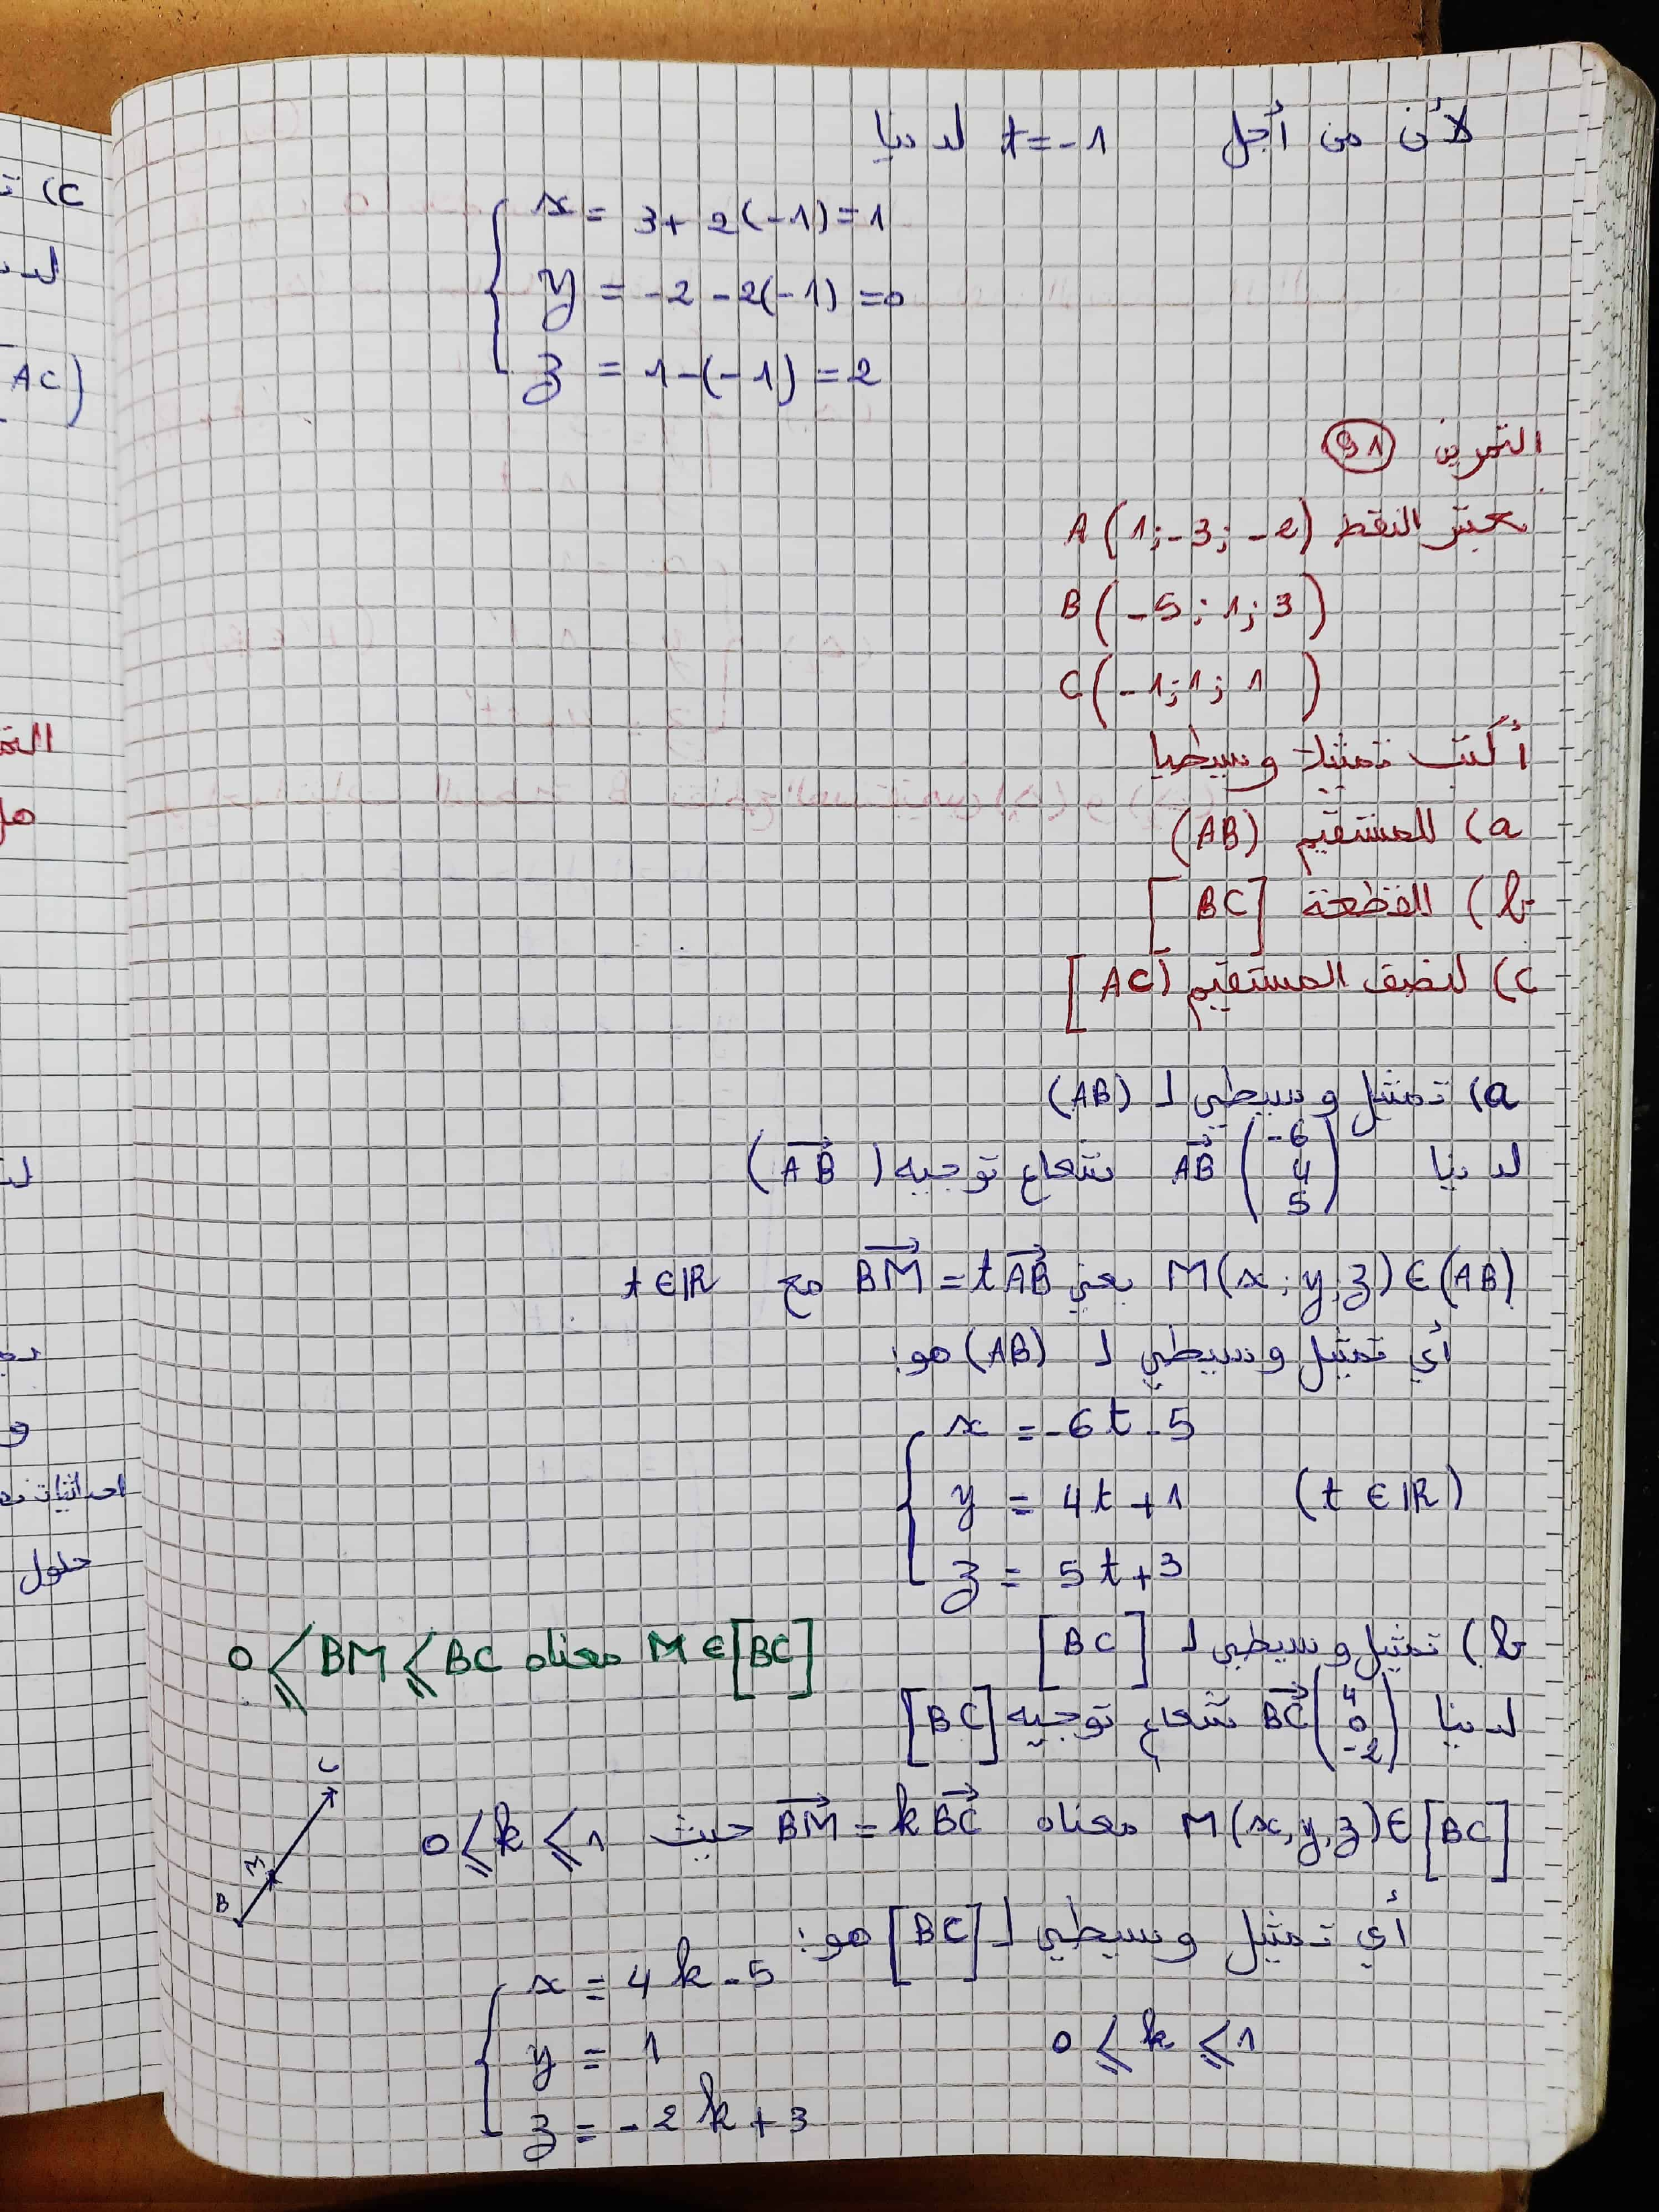 لأن من أجل t = -1 لدينا
x = 3 + 2(-1) = 1
y = -2 - 2(-1) = 0
z = 1 - (-1) = 2
التمرين 91
نعتبر النقط A(1; -3; -2)
B(-5; 1; 3)
C(-1; 1; 1)
أكتب تمثيلا وسيطيا
a) للمستقيم (AB)
b) القطعة [BC]
c) لنصف المستقيم [AC)
a) تمثيل وسيطي لـ (AB)
لدينا \vec{AB} \begin{pmatrix} -6 \\ 4 \\ 5 \end{pmatrix} شعاع توجيه (\vec{AB})
M(x; y, z) ∈ (AB) يعني \vec{BM} = t\vec{AB} مع t ∈ IR
أي تمثيل وسيطي لـ (AB) هو:
x = -6t - 5
y = 4t + 1 (t ∈ IR)
z = 5t + 3
b) تمثيل وسيطي لـ [BC]
M ∈ [BC] معناه 0 ⩽ BM ⩽ BC
لدينا \vec{BC} \begin{pmatrix} 4 \\ 0 \\ -2 \end{pmatrix} شعاع توجيه [BC]
M(x, y, z) ∈ [BC] معناه \vec{BM} = k\vec{BC} حيث 0 ⩽ k ⩽ 1
C
M
B
أي تمثيل وسيطي لـ [BC] هو:
x = 4k - 5
y = 1 0 ⩽ k ⩽ 1
z = -2k + 3
c)
AC)
احداثيات
حلول